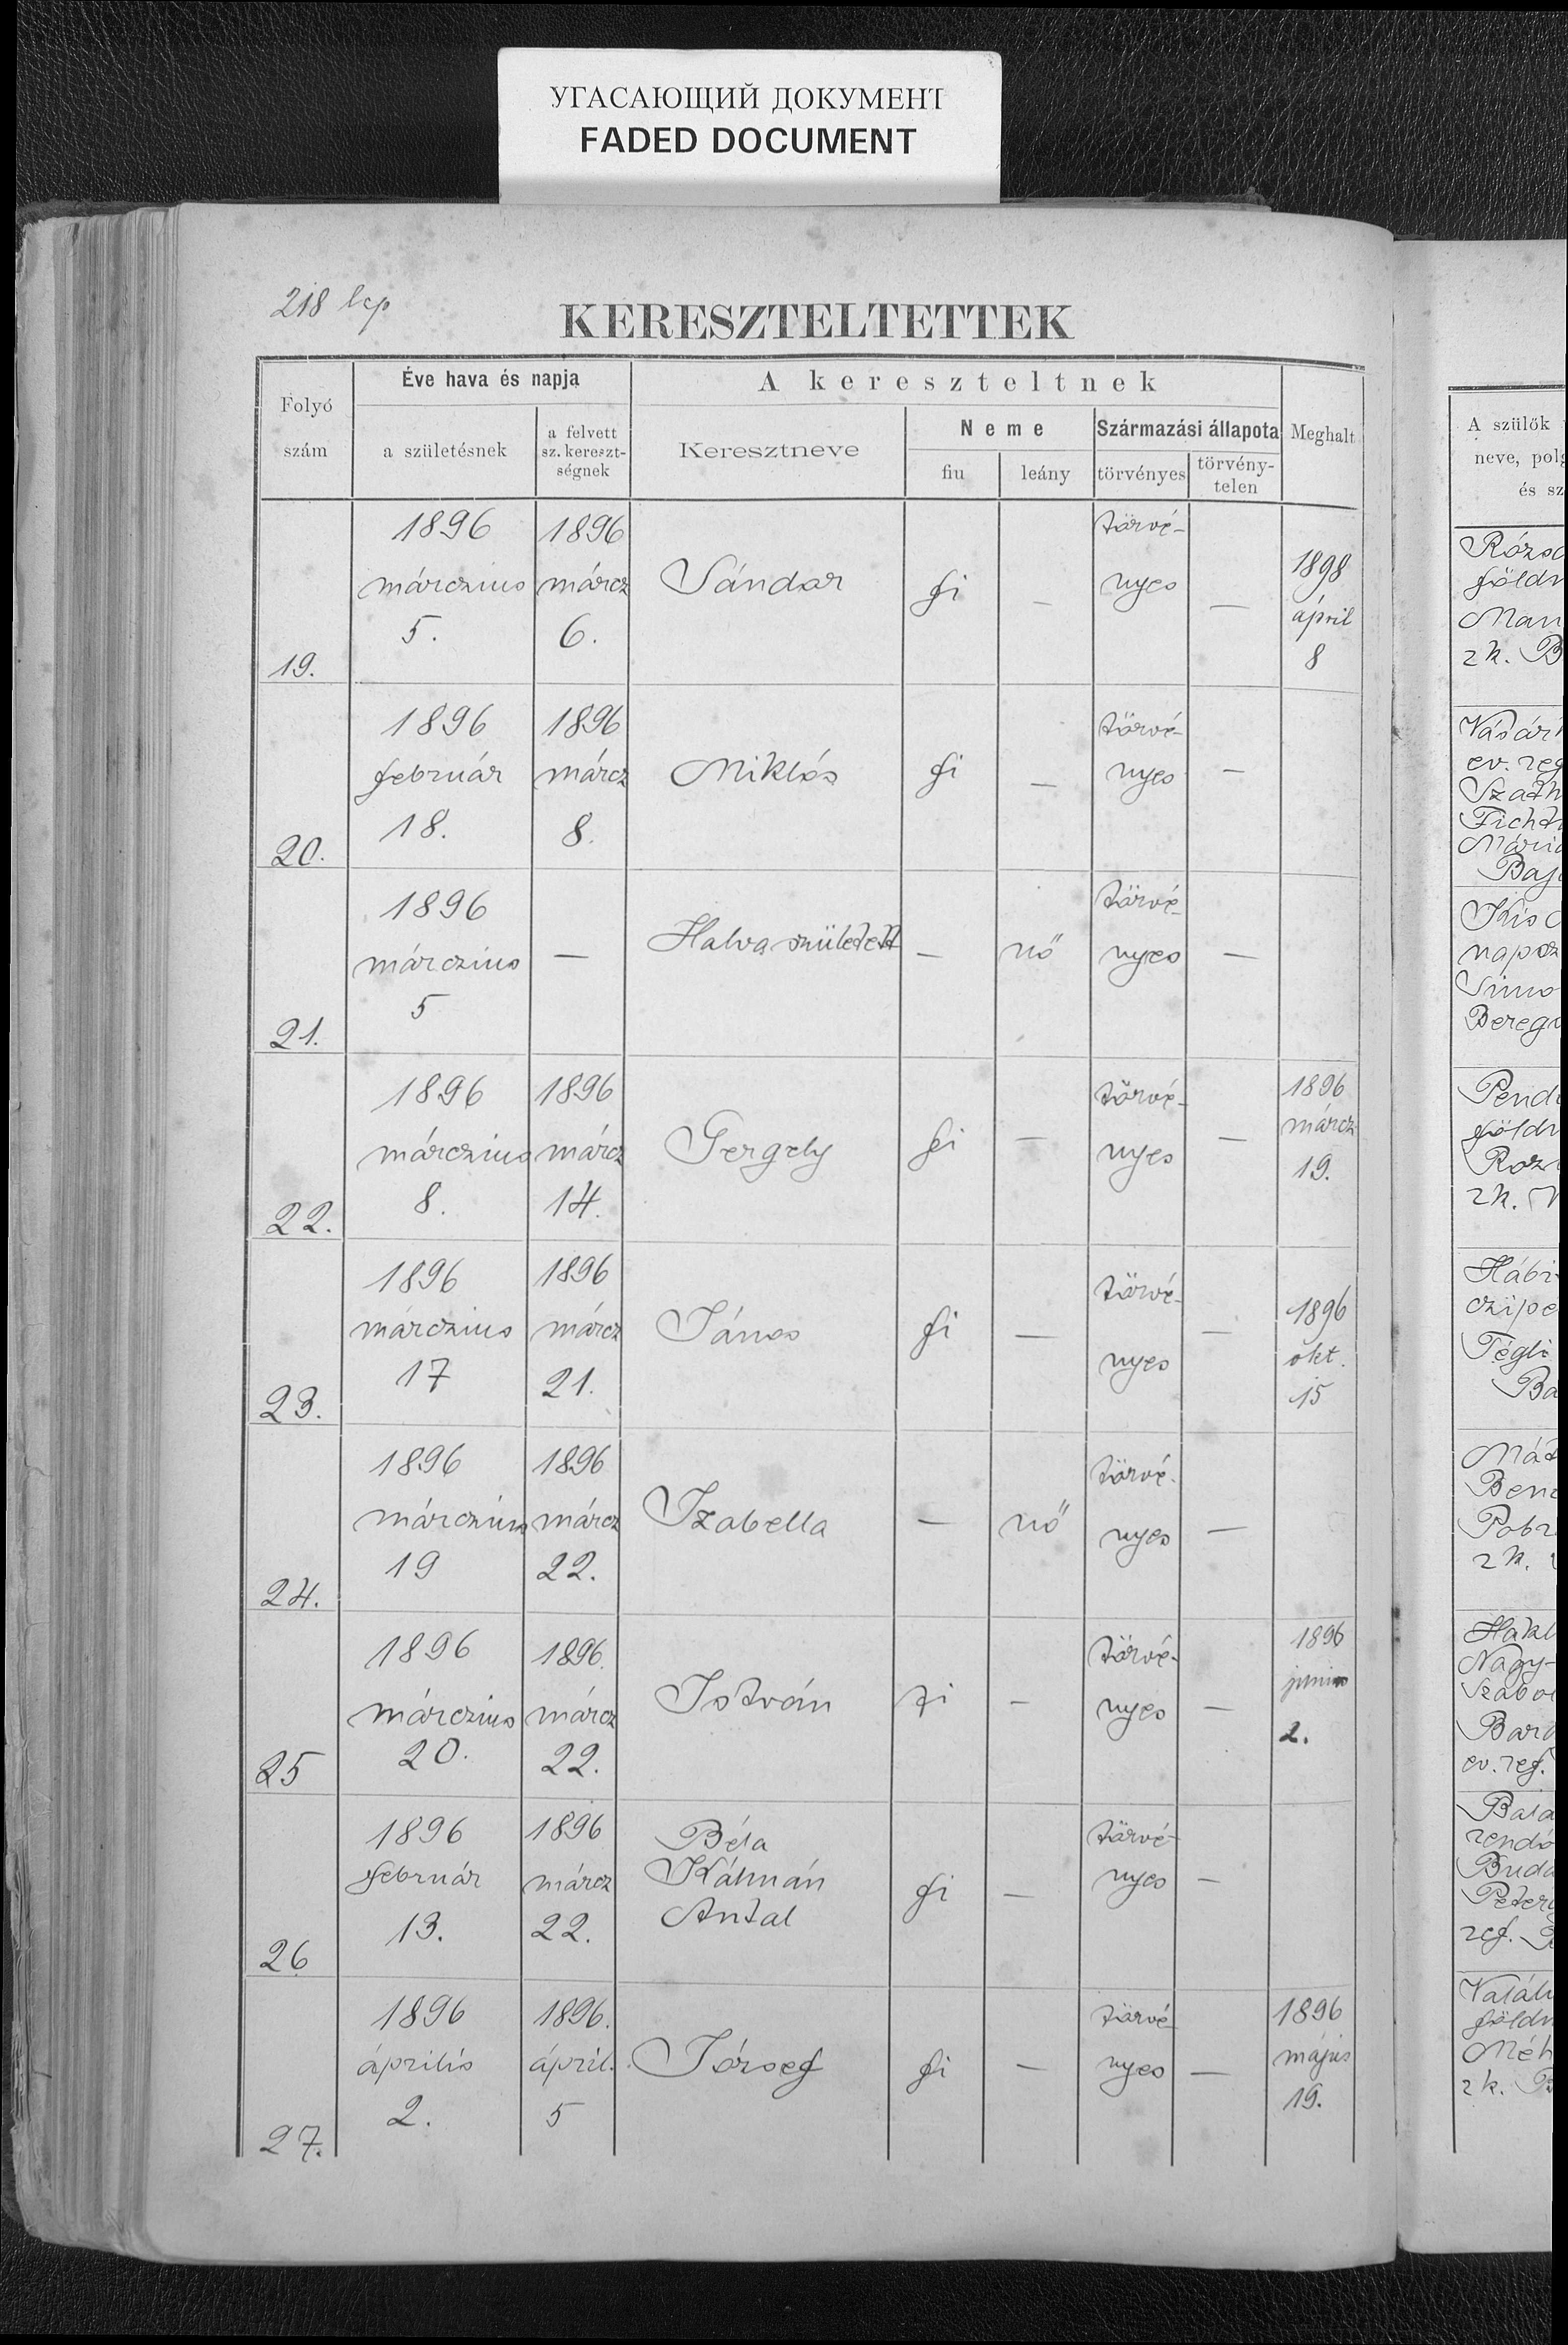 УГАСАЮЩИЙ ДОКУМЕНТ
FADED DOCUMENT
218 lap
KERESZTELTETTEK
Folyó szám
Éve hava és napja
a születésnek
a felvett sz. kereszt-ségnek
A kereszteltnek
Keresztneve
Neme
fiu
leány
Származási állapota
törvényes
törvény-telen
Meghalt
A szülők
neve, polg
és sz
19.
1896 márczius 5.
1896 márcz 6.
Sándor
fi
—
törvé-nyes
—
1898 ápril 8
20.
1896 február 18.
1896 márcz 8.
Miklós
fi
—
törvé-nyes
—
21.
1896 márczius 5
—
Halva született
—
nő
törvé-nyes
—
22.
1896 márczius 8.
1896 márcz 14.
Gergely
fi
—
törvé-nyes
—
1896 márcz 19.
23.
1896 márczius 17
1896 márcz 21.
János
fi
—
törvé-nyes
—
1896 okt. 15
24.
1896 márczius 19
1896 márcz 22.
Izabella
—
nő
törvé-nyes
—
25
1896 márczius 20.
1896. márcz 22.
István
fi
—
törvé-nyes
—
1896 junius 2.
26
1896 február 13.
1896 márcz 22.
Béla
Kálmán
Antal
fi
—
törvé-nyes
—
27.
1896 április 2.
1896. ápril. 5
József
fi
—
törvé-nyes
—
1896 május 19.
Rózsa
földm
Man
zk. B
Vásárh
ev. ref
Szath
Ficht
Mária
Baj
Kis
napsz
Simo
Berega
Pend
földm
Roz
zk.
Hábi
czipe
Tégli
Ba
Mát
Ben
Pobr
zk.
Hakl
Nagy-
Szabol
Bara
ev. ref.
Bala
rendő
Buda
Peter
ref.
Valál
földm
Méh
zk. B